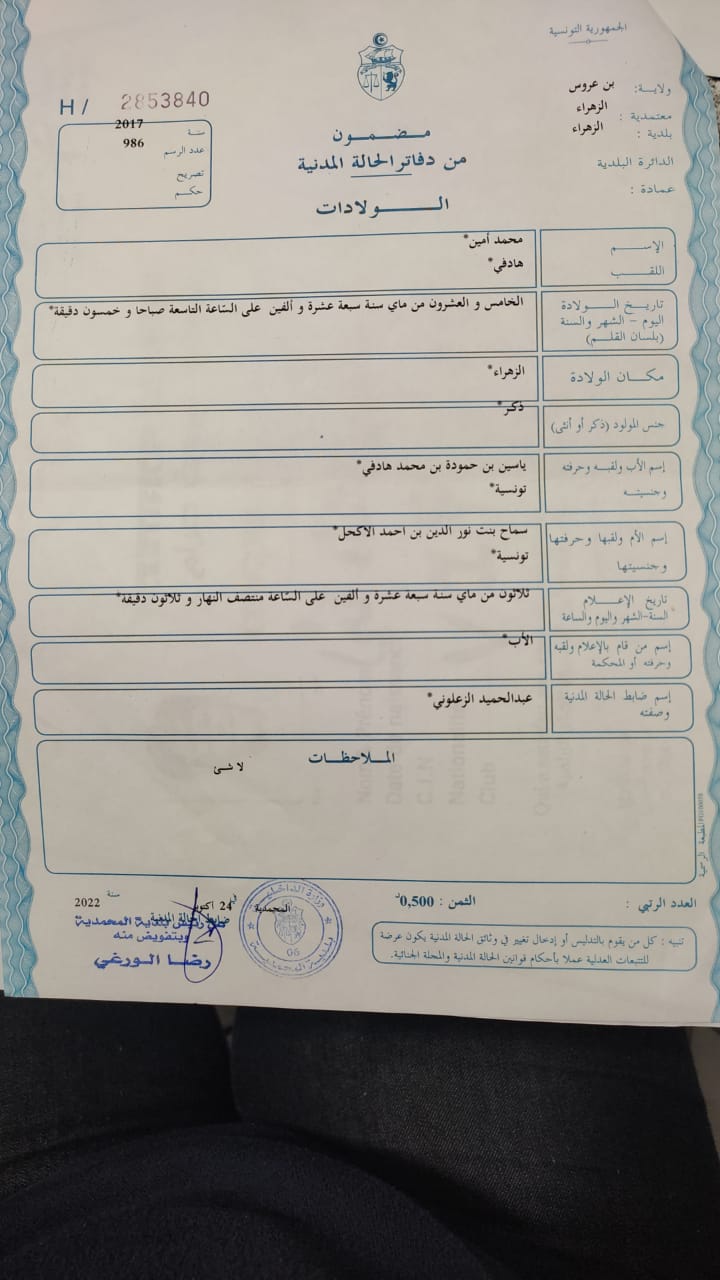 الجمهورية التونسية
ولاية: بن عروس
معتمدية : الزهراء
بلدية : الزهراء
الدائرة البلدية
عمادة :
H / 2853840
سنة 2017
عدد الرسم 986
تصريح
حكم
مضمون
من دفاتر الحالة المدنية
الولادات
الإسم محمد أمين*
اللقب هادفي*
تاريخ الولادة الخامس و العشرون من ماي سنة سبعة عشرة و ألفين على السّاعة التاسعة صباحا و خمسون دقيقة*
اليوم - الشهر والسنة
(بلسان القلم)
مكان الولادة الزهراء*
جنس المولود (ذكر أو أنثى) ذكر*
إسم الأب ولقبه وحرفته ياسين بن حمودة بن محمد هادفي*
وجنسيته تونسية*
إسم الأم ولقبها وحرفتها سماح بنت نور الدين بن احمد الاكحل*
وجنسيتها تونسية*
تاريخ الإعلام ثلاثون من ماي سنة سبعة عشرة و ألفين على السّاعة منتصف النهار و ثلاثون دقيقة*
السنة-الشهر واليوم والساعة
إسم من قام بالإعلام ولقبه الأب*
وحرفته أو المحكمة
إسم ضابط الحالة المدنية عبدالحميد الزعلوني*
وصفته
الملاحظات
لا شئ
المطبعة الرسمية
العدد الرتبي :
الثمن : 0,500د
المحمدية في 24 اكتوبر سنة 2022
ضابط الحالة المدنية
رئيس بلدية المحمدية
وبتفويض منه
رضا الورغي
وزارة الداخلية
بلدية المحمدية
06
تنبيه : كل من يقوم بالتدليس أو إدخال تغيير في وثائق الحالة المدنية يكون عرضة
للتتبعات العدلية عملا بأحكام قوانين الحالة المدنية والمجلة الجنائية.